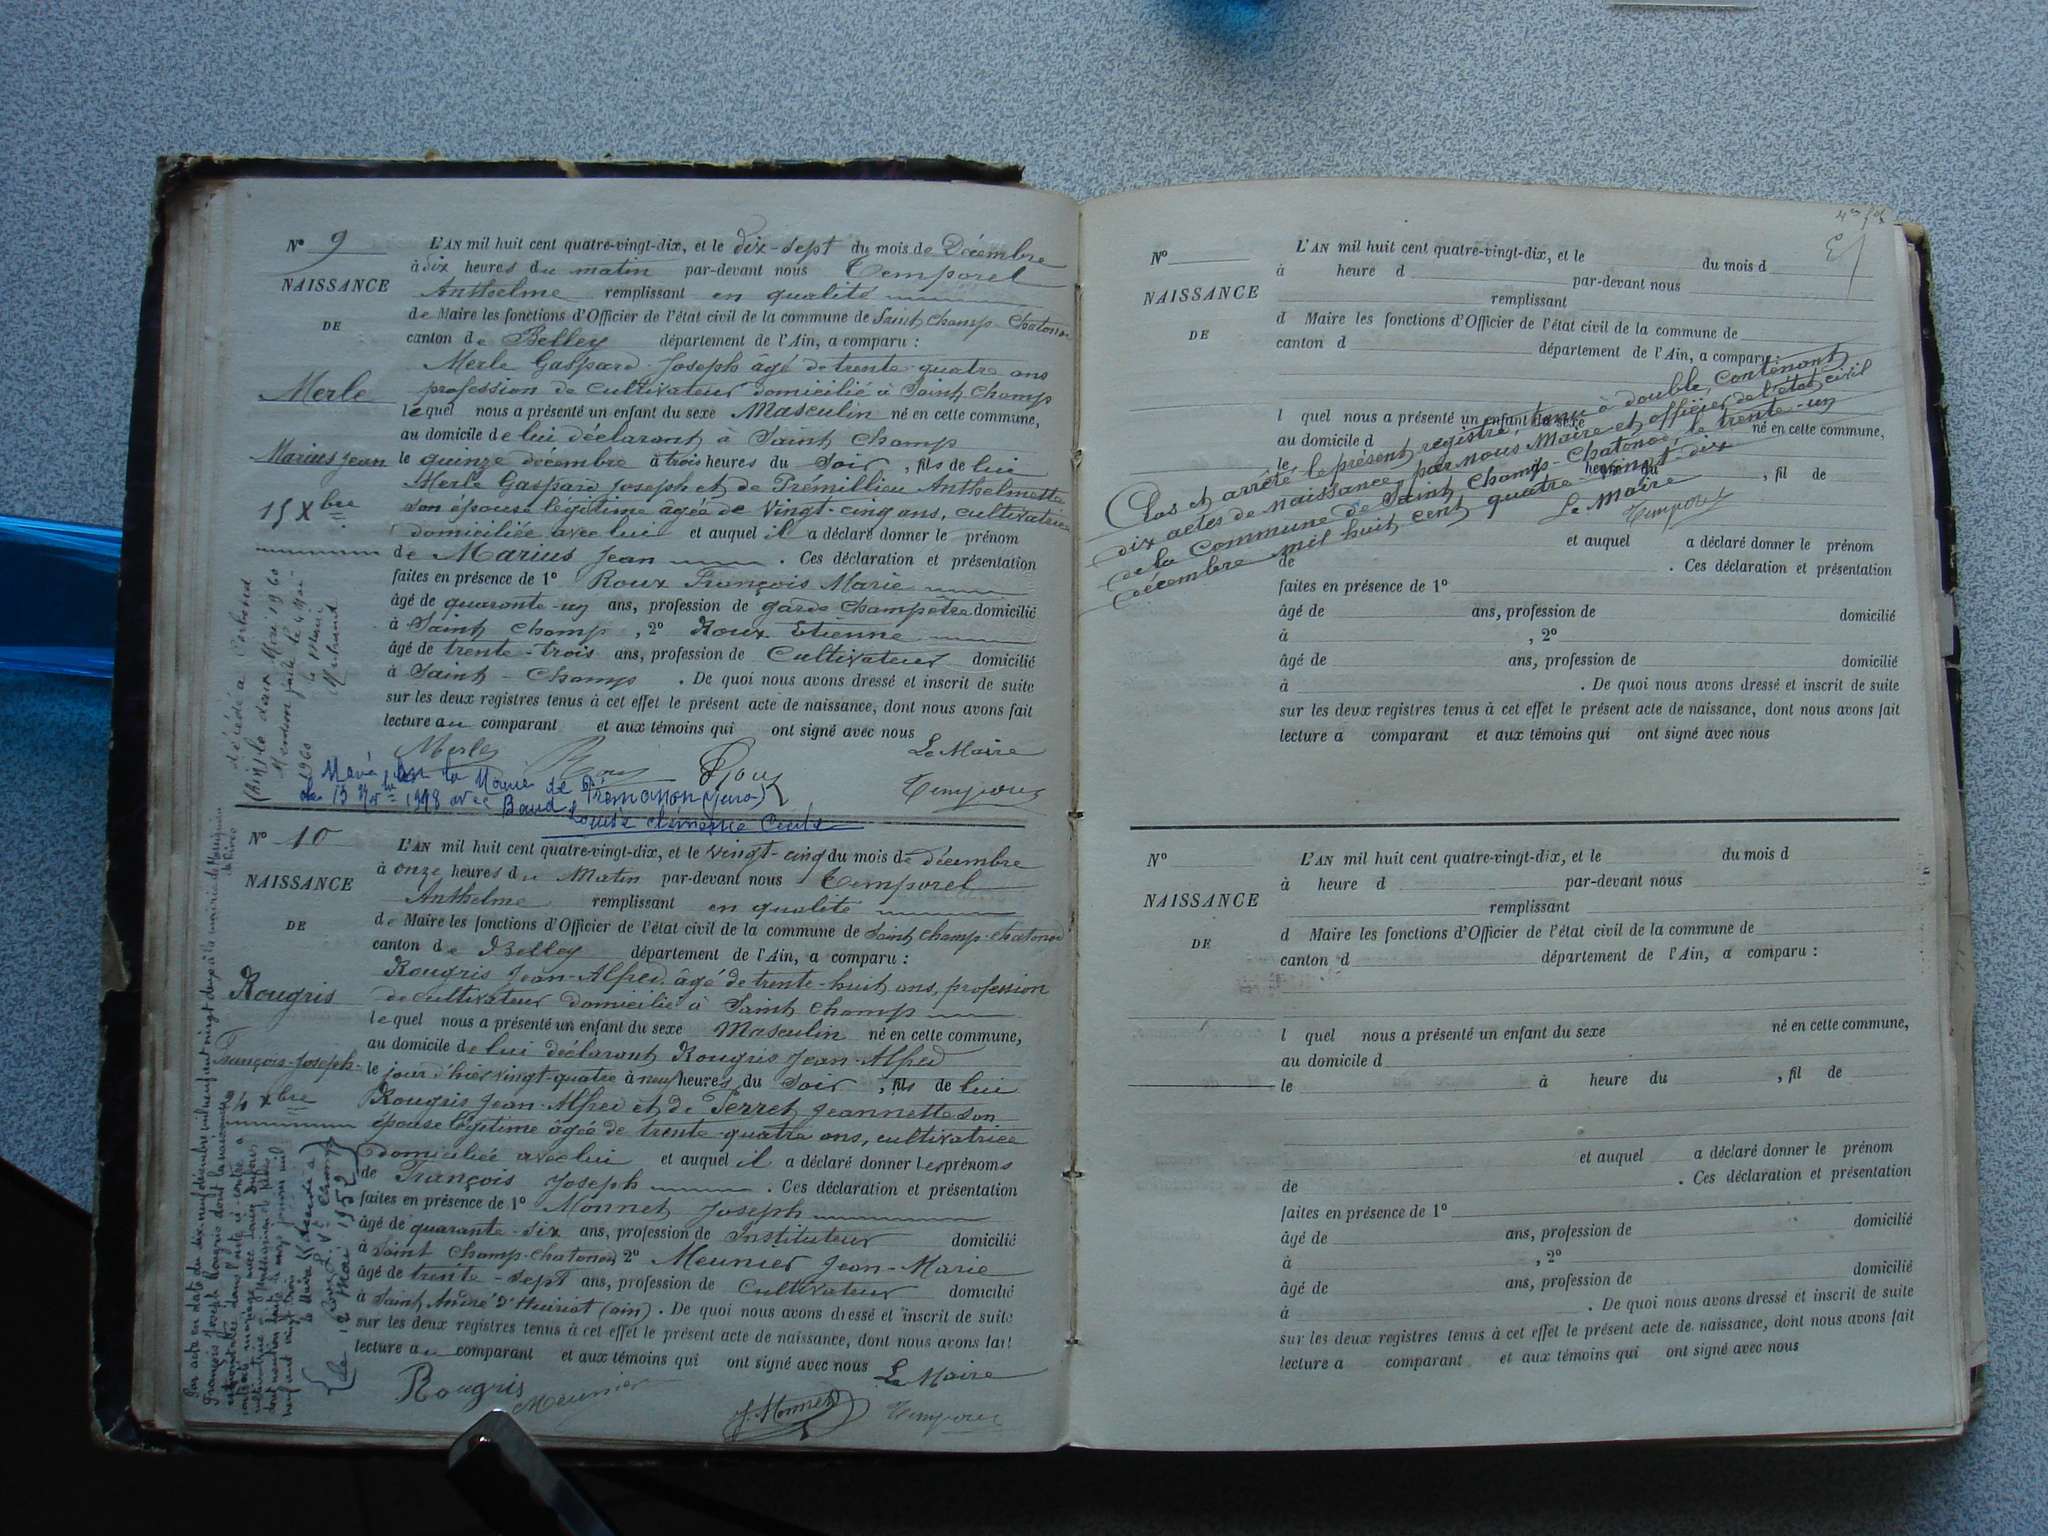 N° 9
NAISSANCE
DE
Merle
Marius Jean
15 Xbre
L'AN mil huit cent quatre-vingt-dix, et le dix-sept du mois de Décembre
à dix heures du matin par-devant nous Temporel
Anthelme remplissant en qualité
de Maire les fonctions d'Officier de l'état civil de la commune de Saint Champ-Chatonod
canton de Belley département de l'Ain, a comparu :
Merle Gaspard Joseph âgé de trente quatre ans
profession de cultivateur domicilié à Saint Champ
lequel nous a présenté un enfant du sexe Masculin né en cette commune,
au domicile de lui déclarant à Saint Champ
le quinze décembre à trois heures du Soir, fils de lui
Merle Gaspard Joseph et de Prémillieu Anthelmette
son épouse légitime âgée de vingt-cinq ans, cultivatrice
domiciliée avec lui et auquel il a déclaré donner le prénom
de Marius Jean. Ces déclaration et présentation
faites en présence de 1° Roux François Marie
âgé de quarante-un ans, profession de garde champêtre domicilié
à Saint Champ, 2° Roux Etienne
âgé de trente-trois ans, profession de Cultivateur domicilié
à Saint-Champ. De quoi nous avons dressé et inscrit de suite
sur les deux registres tenus à cet effet le présent acte de naissance, dont nous avons fait
lecture au comparant et aux témoins qui ont signé avec nous
Merle Roux Roux Le Maire
Temporel
décédé à
1960
le Maire
Marié à la Mairie de Prémanon (Jura)
le 13 avec Baud
Louise Clémence
N° 10
NAISSANCE
DE
Rougris
François-Joseph
24 Xbre
L'AN mil huit cent quatre-vingt-dix, et le vingt-cinq du mois de décembre
à onze heures du Matin par-devant nous Temporel
Anthelme remplissant en qualité
de Maire les fonctions d'Officier de l'état civil de la commune de Saint Champ-Chatonod
canton de Belley département de l'Ain, a comparu :
Rougris Jean-Alfred, âgé de trente-huit ans, profession
de cultivateur domicilié à Saint Champ
lequel nous a présenté un enfant du sexe Masculin né en cette commune,
au domicile de lui déclarant Rougris Jean-Alfred
le jour d'hier vingt-quatre à neuf heures du Soir, fils de lui
Rougris Jean-Alfred et de Perret Jeannette son
épouse légitime âgée de trente-quatre ans, cultivatrice
domiciliée avec lui et auquel il a déclaré donner les prénoms
de François Joseph. Ces déclaration et présentation
faites en présence de 1° Monnet Joseph
âgé de quarante-six ans, profession de Instituteur domicilié
à Saint Champ-Chatonod, 2° Meunier Jean-Marie
âgé de trente-sept ans, profession de Cultivateur domicilié
à Saint André d'Huiriat (ain). De quoi nous avons dressé et inscrit de suite
sur les deux registres tenus à cet effet le présent acte de naissance, dont nous avons fait
lecture au comparant et aux témoins qui ont signé avec nous
Le Maire
Rougris Meunier J. Monnet Temporel
Par acte en date du dix-neuf décembre mil neuf cent vingt deux à la mairie de
François Joseph Rougris dont la naissance
Décédé à
St Champ
le 12 Mai 1959
N°
NAISSANCE
DE
L'AN mil huit cent quatre-vingt-dix, et le du mois d
à heure d par-devant nous
remplissant
d Maire les fonctions d'Officier de l'état civil de la commune de
canton d département de l'Ain, a comparu :
l quel nous a présenté un enfant du sexe né en cette commune,
au domicile d
le heure du , fil de
et auquel a déclaré donner le prénom
de . Ces déclaration et présentation
faites en présence de 1°
âgé de ans, profession de domicilié
à , 2°
âgé de ans, profession de domicilié
à . De quoi nous avons dressé et inscrit de suite
sur les deux registres tenus à cet effet le présent acte de naissance, dont nous avons fait
lecture a comparant et aux témoins qui ont signé avec nous
Clos et arrêté le présent registre, tenu à double, contenant
dix actes de naissance, par nous Maire et officier de l'état civil
de la commune de Saint Champ-Chatonod, le trente-un
décembre mil huit cent quatre-vingt-dix
Le Maire
Temporel
N°
NAISSANCE
DE
L'AN mil huit cent quatre-vingt-dix, et le du mois d
à heure d par-devant nous
remplissant
d Maire les fonctions d'Officier de l'état civil de la commune de
canton d département de l'Ain, a comparu :
l quel nous a présenté un enfant du sexe né en cette commune,
au domicile d
le à heure du , fil de
et auquel a déclaré donner le prénom
de . Ces déclaration et présentation
faites en présence de 1°
âgé de ans, profession de domicilié
à , 2°
âgé de ans, profession de domicilié
à . De quoi nous avons dressé et inscrit de suite
sur les deux registres tenus à cet effet le présent acte de naissance, dont nous avons fait
lecture a comparant et aux témoins qui ont signé avec nous